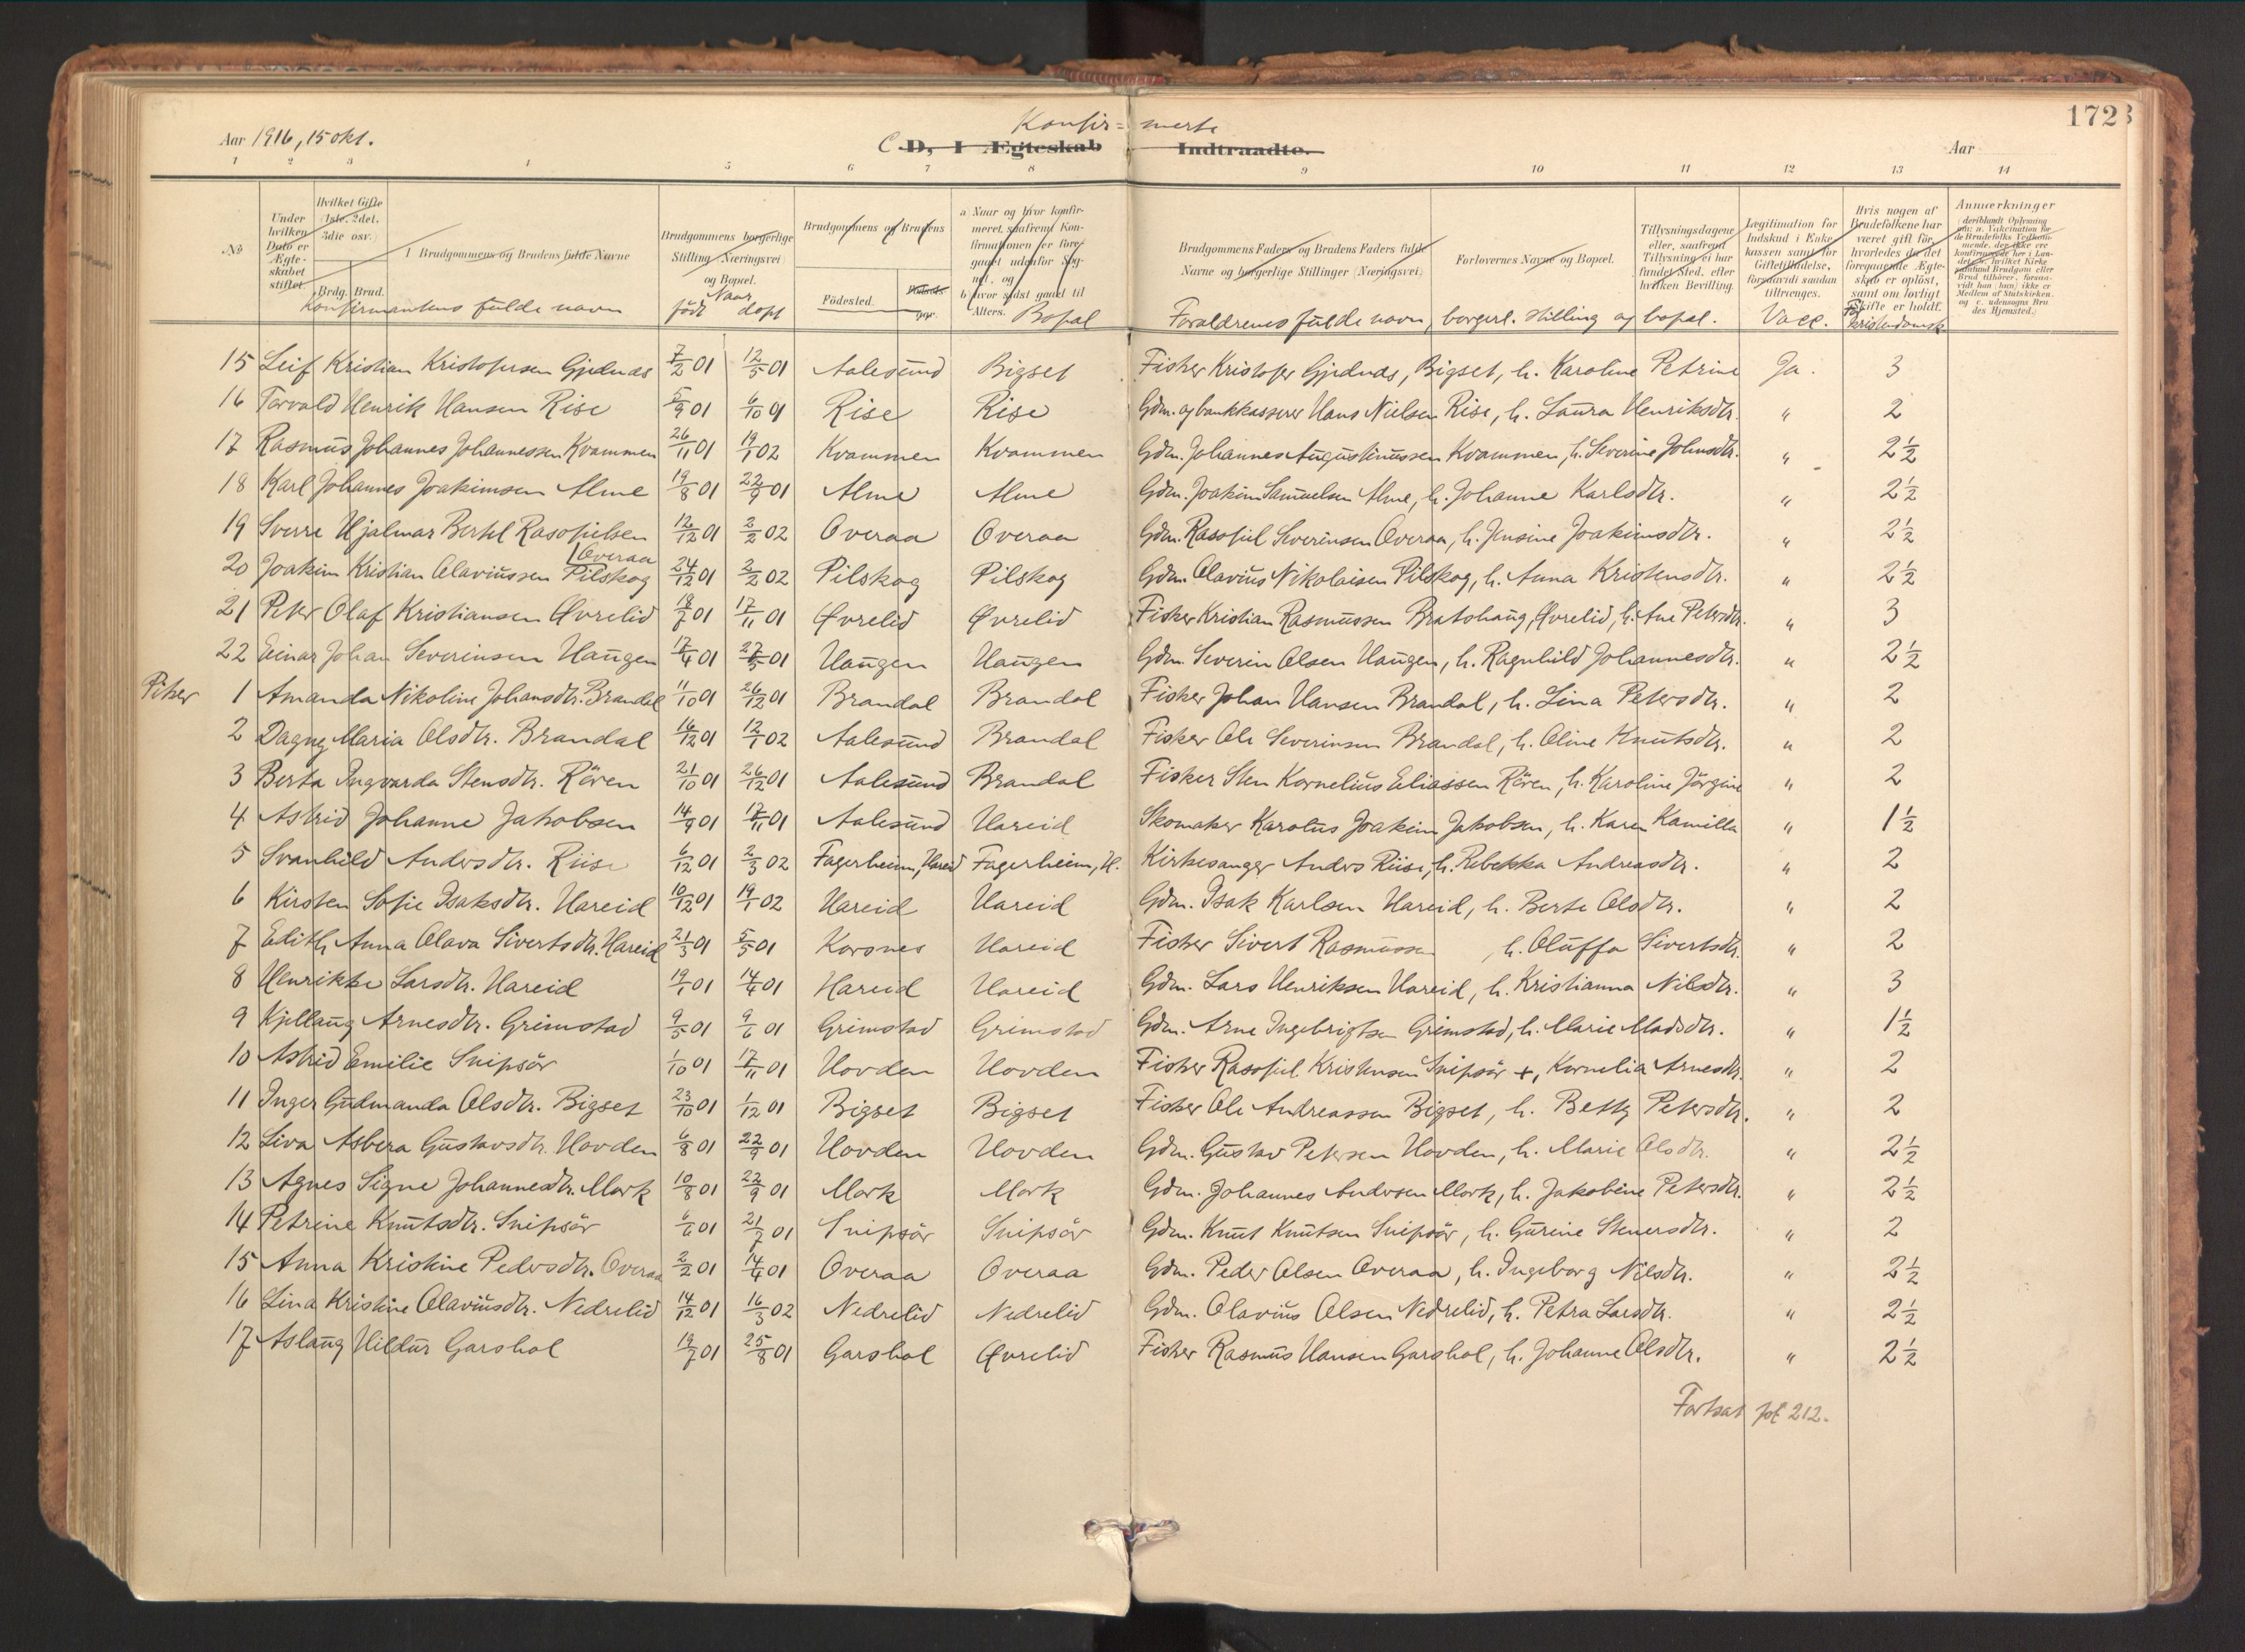 1723
Konfir= merte
Aar 1916, 15 okt. C D, I Ægteskab Indtraadte. Aar
1 2 3 4 5 6 7 8 9 10 11 12 13 14
No.
Under hvilken Dato er Ægteskabet stiftet.
Hvilket Gifte (1ste, 2det, 3die osv.)
Brdg. Brud.
Brudgommens og Brudens fulde Navne
Konfirmantens fulde navn
Brudgommens borgerlige Stilling (Næringsvei) og Bopæl.
Naar
födt döpt
Brudgommens og Brudens
Födested
a) Naar og hvor konfirmeret, saafremt Konfirmationen er foregaaet udenfor Sognet, og
b) hvor sidst gaaet til Alters.
Bopæl
Brudgommens Faders og Brudens Faders fulde Navne og borgerlige Stillinger (Næringsvei)
Forlovernes Navne og Bopæl.
Forældrenes fulde navn, borgerl. stilling og bopæl.
Tillysningsdagene eller, saafremt Tillysning ei har fundet Sted, efter hvilken Bevilling.
Legitimation for Indskud i Enkekassen samt for Giftetilladelse, forsaavidt saadan tiltrænges.
Vacc.
Hvis nogen af Brudefolkene har været gift før, hvorledes da det foregaaende Ægteskab er opløst, samt om lovligt Skifte er holdt.
Kristendomsk
Anmærkninger
15 Leif Kristian Kristofersen Gjerdnes 7/2 01 12/5 01 Aalesund Bigset Fisker Kristofer Gjerdnes, Bigset, h. Karoline Petrine Ja. 3
16 Torvald Henrik Hansen Rise 5/9 01 6/10 01 Rise Rise Gdm. og bankkasserer Hans Nielsen Rise, h. Laura Henriksdtr. " 2
17 Rasmus Johannes Johannessen Kvammen 26/11 01 19/1 02 Kvammen Kvammen Gdm. Johannes Augustinussen Kvammen, h. Severine Johnsdtr. " 2 1/2
18 Karl Johannes Joakimsen Alme 19/8 01 22/9 01 Alme Alme Gdm. Joakim Samuelsen Alme, h. Johanne Karlsdtr. " 2 1/2
19 Sverre Hjalmar Bertel Rasofielsen 12/12 01 2/2 02 Overaa Overaa Gdm. Rasofiel Severinsen Overaa, h. Jensine Joakimsdtr. " 2 1/2
Overaa
20 Joakim Kristian Olaviussen Pilskog 24/12 01 2/2 02 Pilskog Pilskog Gdm. Olavius Nikolaisen Pilskog, h. Anna Kristensdtr. " 2 1/2
21 Peter Olaf Kristiansen Øvrelid 18/7 01 17/11 01 Øvrelid Øvrelid Fisker Kristian Rasmussen Bratshaug, Øvrelid, h. Ane Petersdtr. " 3
22 Einar Johan Severinsen Haugen 17/4 01 27/5 01 Haugen Haugen Gdm. Severin Olsen Haugen, h. Ragnhild Johannesdtr. " 2 1/2
Piker 1 Amanda Nikoline Johansdtr. Brandal 11/10 01 26/12 01 Brandal Brandal Fisker Johan Hansen Brandal, h. Lina Petersdtr. " 2
2 Dagny Maria Olsdtr. Brandal 16/12 01 12/1 02 Aalesund Brandal Fisker Ole Severinsen Brandal, h. Oline Knutsdtr. " 2
3 Berta Ingvarda Stensdtr. Rören 21/10 01 26/12 01 Aalesund Brandal Fisker Sten Kornelius Eliassen Rören, h. Karoline Jörgine " 2
4 Astrid Johanne Jakobsen 14/9 01 17/11 01 Aalesund Hareid Skomaker Karolus Joakim Jakobsen, h. Karen Kamilla " 1 1/2
5 Svanhild Andersdtr. Riise 6/12 01 2/3 02 Fagerheim, Hareid Fagerheim, H. Kirkesanger Anders Riise, h. Rebekka Andreasdtr. " 2
6 Kirsten Sofie Isaksdtr. Hareid 10/12 01 19/1 02 Hareid Hareid Gdm. Isak Karlsen Hareid, h. Berte Olsdtr. " 2
7 Edith Anna Olava Sivertsdtr. Hareid 21/3 01 5/5 01 Korsnes Hareid Fisker Sivert Rasmussen , h. Oluffa Sivertsdtr. " 2
8 Henrikke Larsdtr. Hareid 19/1 01 14/4 01 Hareid Hareid Gdm. Lars Henriksen Hareid, h. Kristianna Nilsdtr. " 3
9 Kjellaug Arnesdtr. Grimstad 9/5 01 9/6 01 Grimstad Grimstad Gdm. Arne Ingebrigtsen Grimstad, h. Marie Madsdtr. " 1 1/2
10 Astrid Emilie Snipsör 1/10 01 17/11 01 Hovden Hovden Fisker Rasofiel Kristensen Snipsör +, Kornelia Arnesdtr. " 2
11 Inger Gudmanda Olsdtr. Bigset 23/10 01 1/12 01 Bigset Bigset Fisker Ole Andreassen Bigset, h. Betty Petersdtr. " 2
12 Liva Asbera Gustavsdtr. Hovden 6/8 01 22/9 01 Hovden Hovden Gdm. Gustav Petersen Hovden, h. Marie Olsdtr. " 2 1/2
13 Agnes Signe Johannesdtr. Mork 10/8 01 22/9 01 Mork Mork Gdm. Johannes Andersen Mork, h. Jakobine Petersdtr. " 2 1/2
14 Petrine Knutsdtr. Snipsör 6/6 01 21/7 01 Snipsör Snipsör Gdm. Knut Knutsen Snipsör, h. Gurine Stenersdtr. " 2
15 Anna Kristine Pedersdtr. Overaa 2/2 01 14/4 01 Overaa Overaa Gdm. Peder Olsen Overaa, h. Ingeborg Nilsdtr. " 2 1/2
16 Lina Kristine Olaviusdtr. Nedrelid 14/12 01 16/3 02 Nedrelid Nedrelid Gdm. Olavius Olsen Nedrelid, h. Petra Larsdtr. " 2 1/2
17 Aslaug Hildur Garshol 19/7 01 25/8 01 Garshol Øvrelid Fisker Rasmus Hansen Garshol, h. Johanne Olsdtr. " 2 1/2
Fortsat 212.